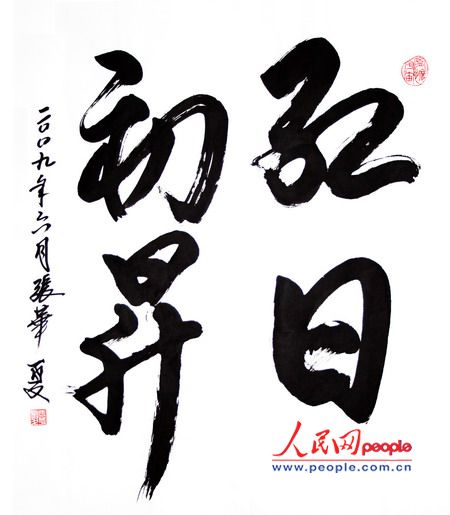 红日
初昇
二〇〇九年六月張華夏
人民网people
www.people.com.cn